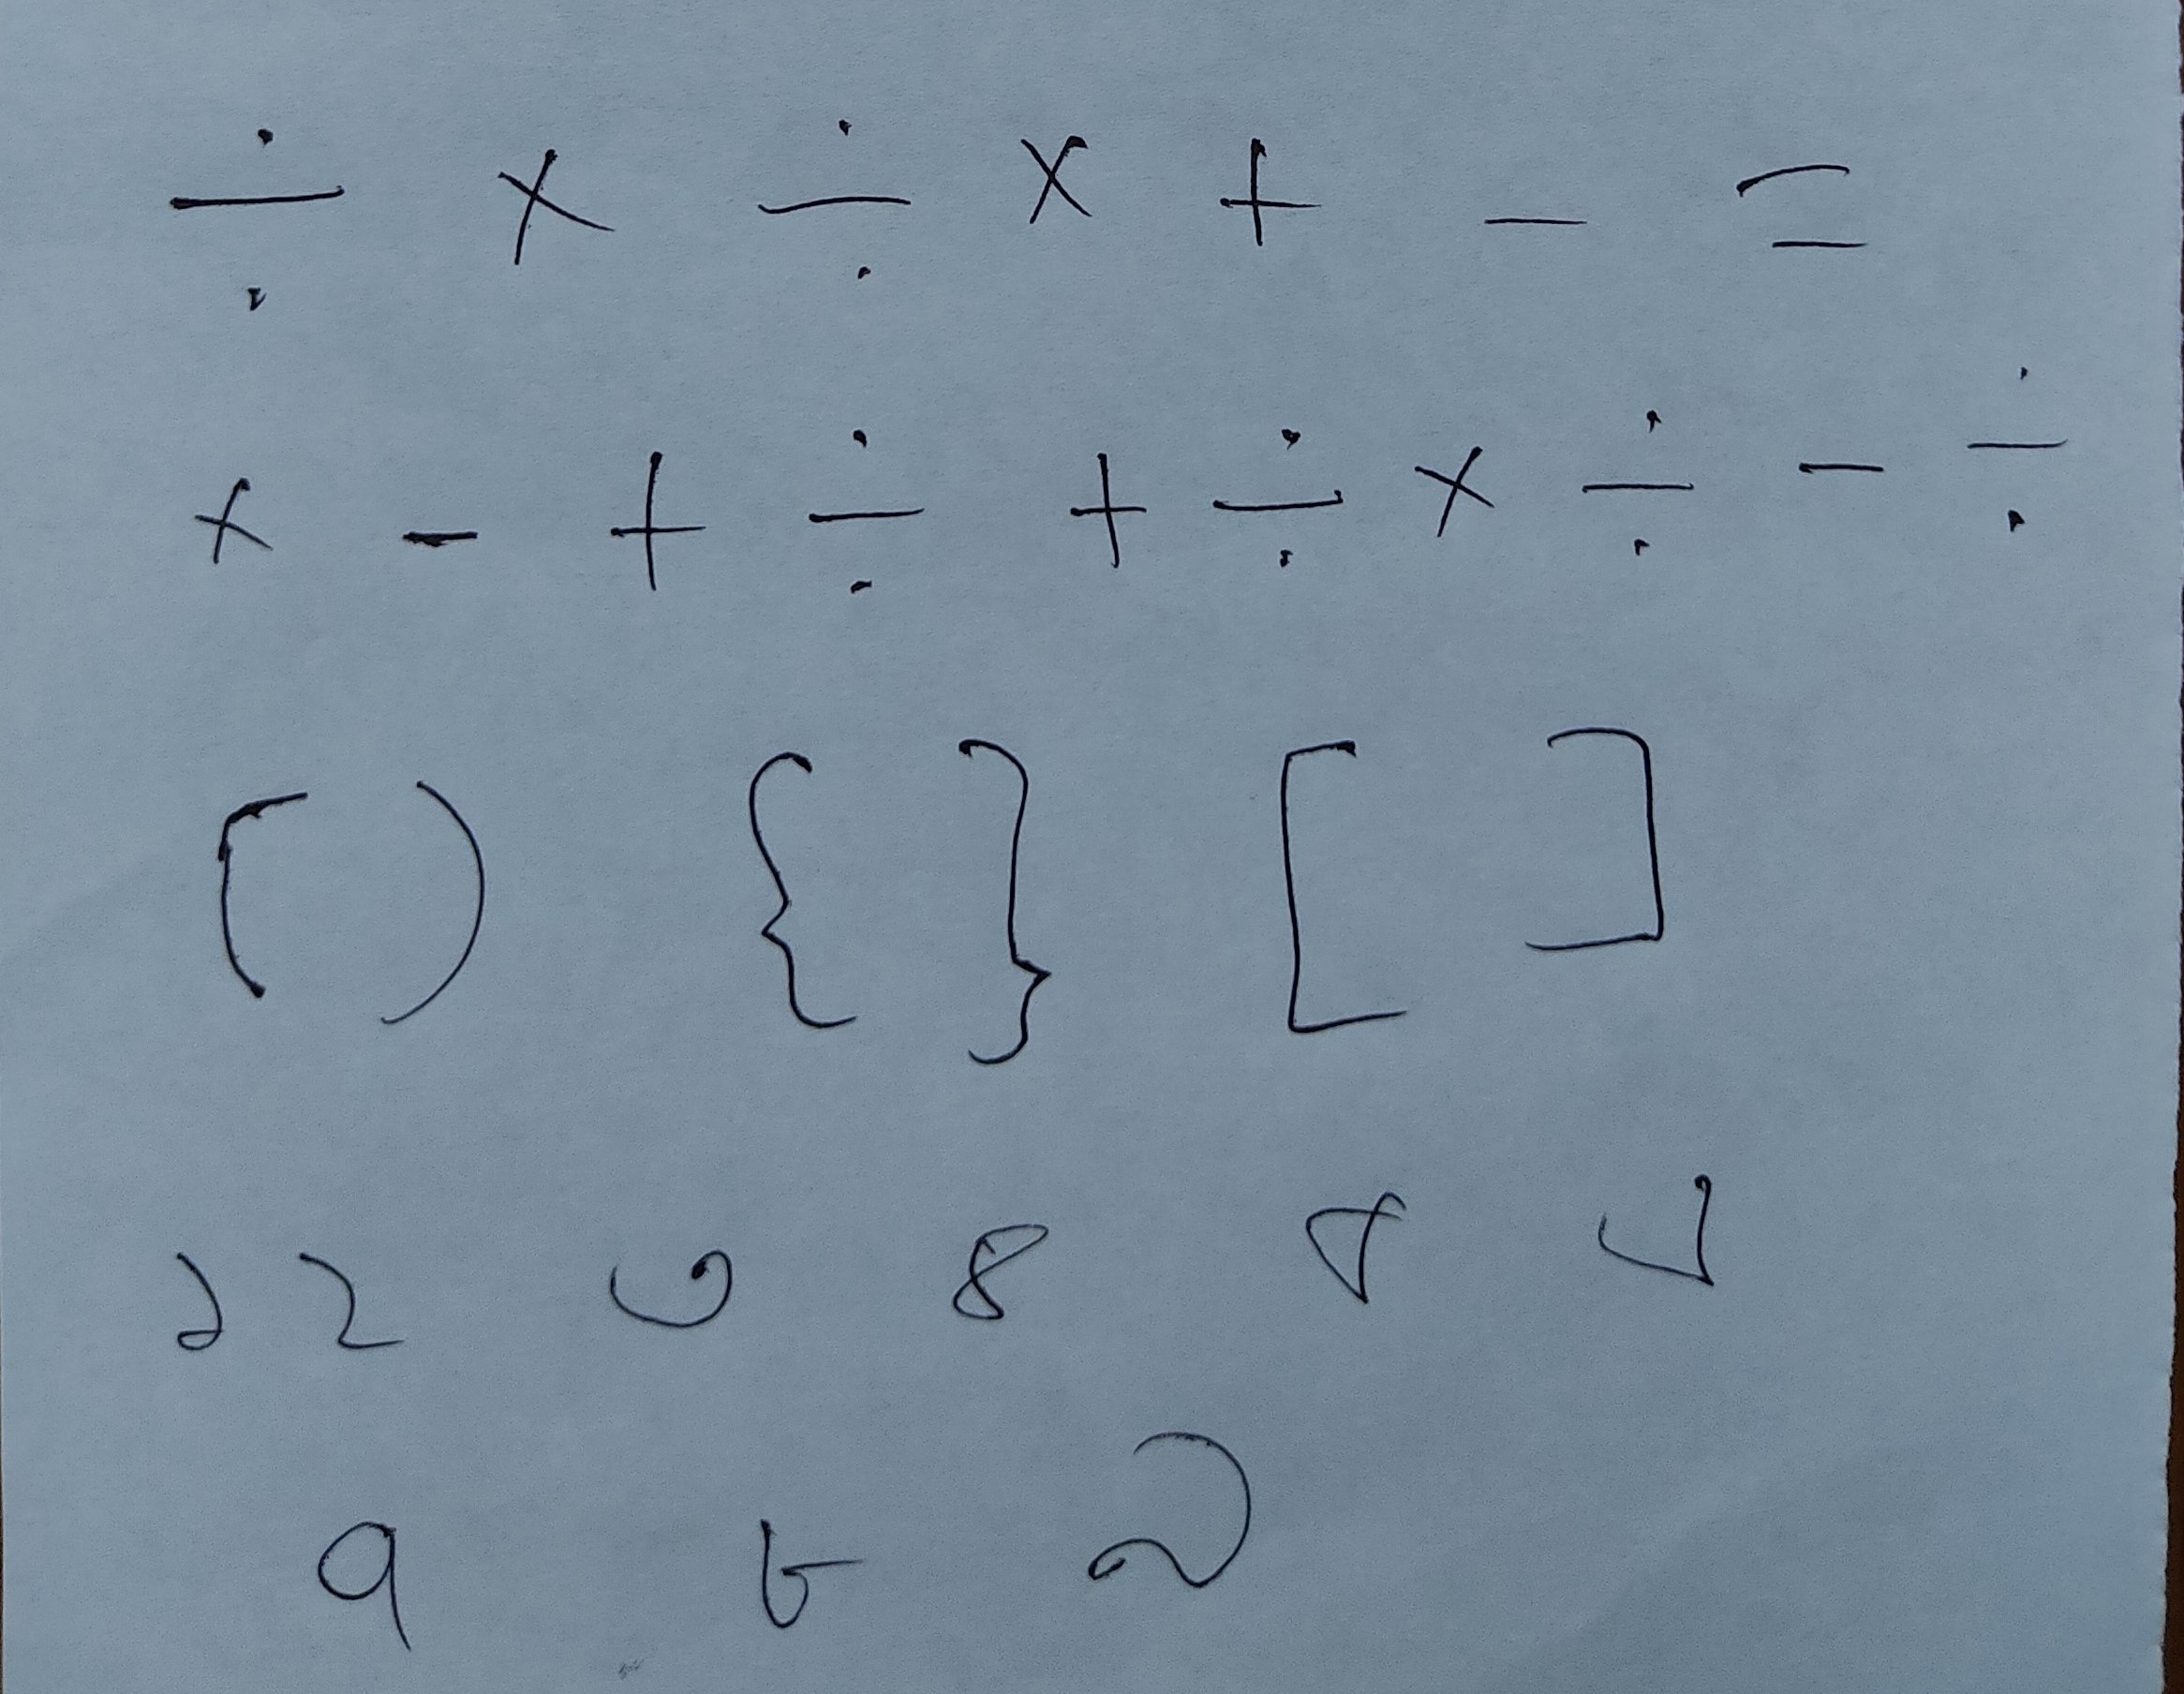 ÷ × ÷ × + - =
× - + ÷ + ÷ × ÷ - ÷
( ) { } [ ]
১ ২ ৩ ৪ ৫ ৬
৭ ৮ ৯